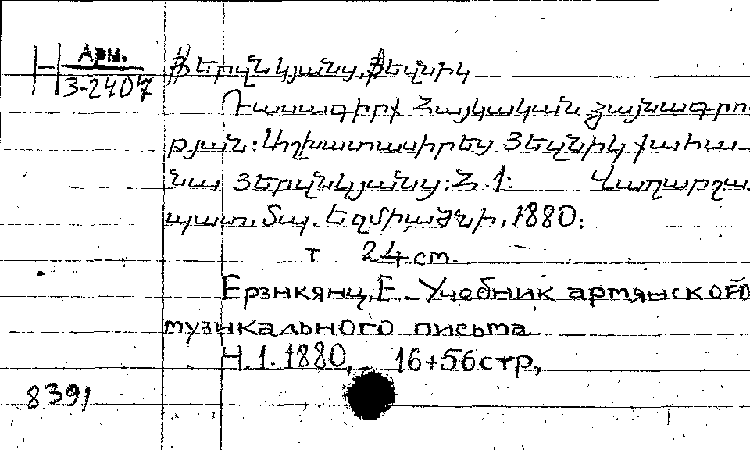 Н Арм. 3-2407
Յերզնկյանց, Յեզնիկ
Դասագիրք Հայկական ձայնագրու
թյան: Աշխատասիրեց Յեզնիկ քահա
նա Յերզնկյանց: Հ. 1: Վաղարշա
պատ. Տպ. Եզմիածնի, 1880:
т 24 cm.
Ерзнкянц, Е. Учебник армянской
музыкального письма
Н. 1. 1880, 16+56 стр,
8391